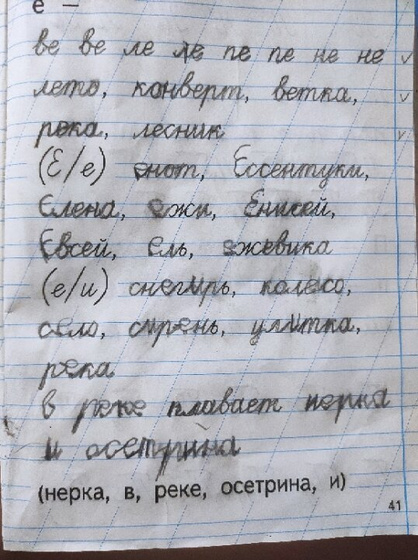 е —
ве ве ле ле пе пе не не
лето, конверт, ветка,
река, лесник
(Е/е) енот, Ессентуки,
Елена, ежи, Енисей,
Евсей, ель, ежевика
(е/и) снегирь, колесо,
село, сирень, улитка,
река
в реке плавает нерка
и осетрина
(нерка, в, реке, осетрина, и)
41